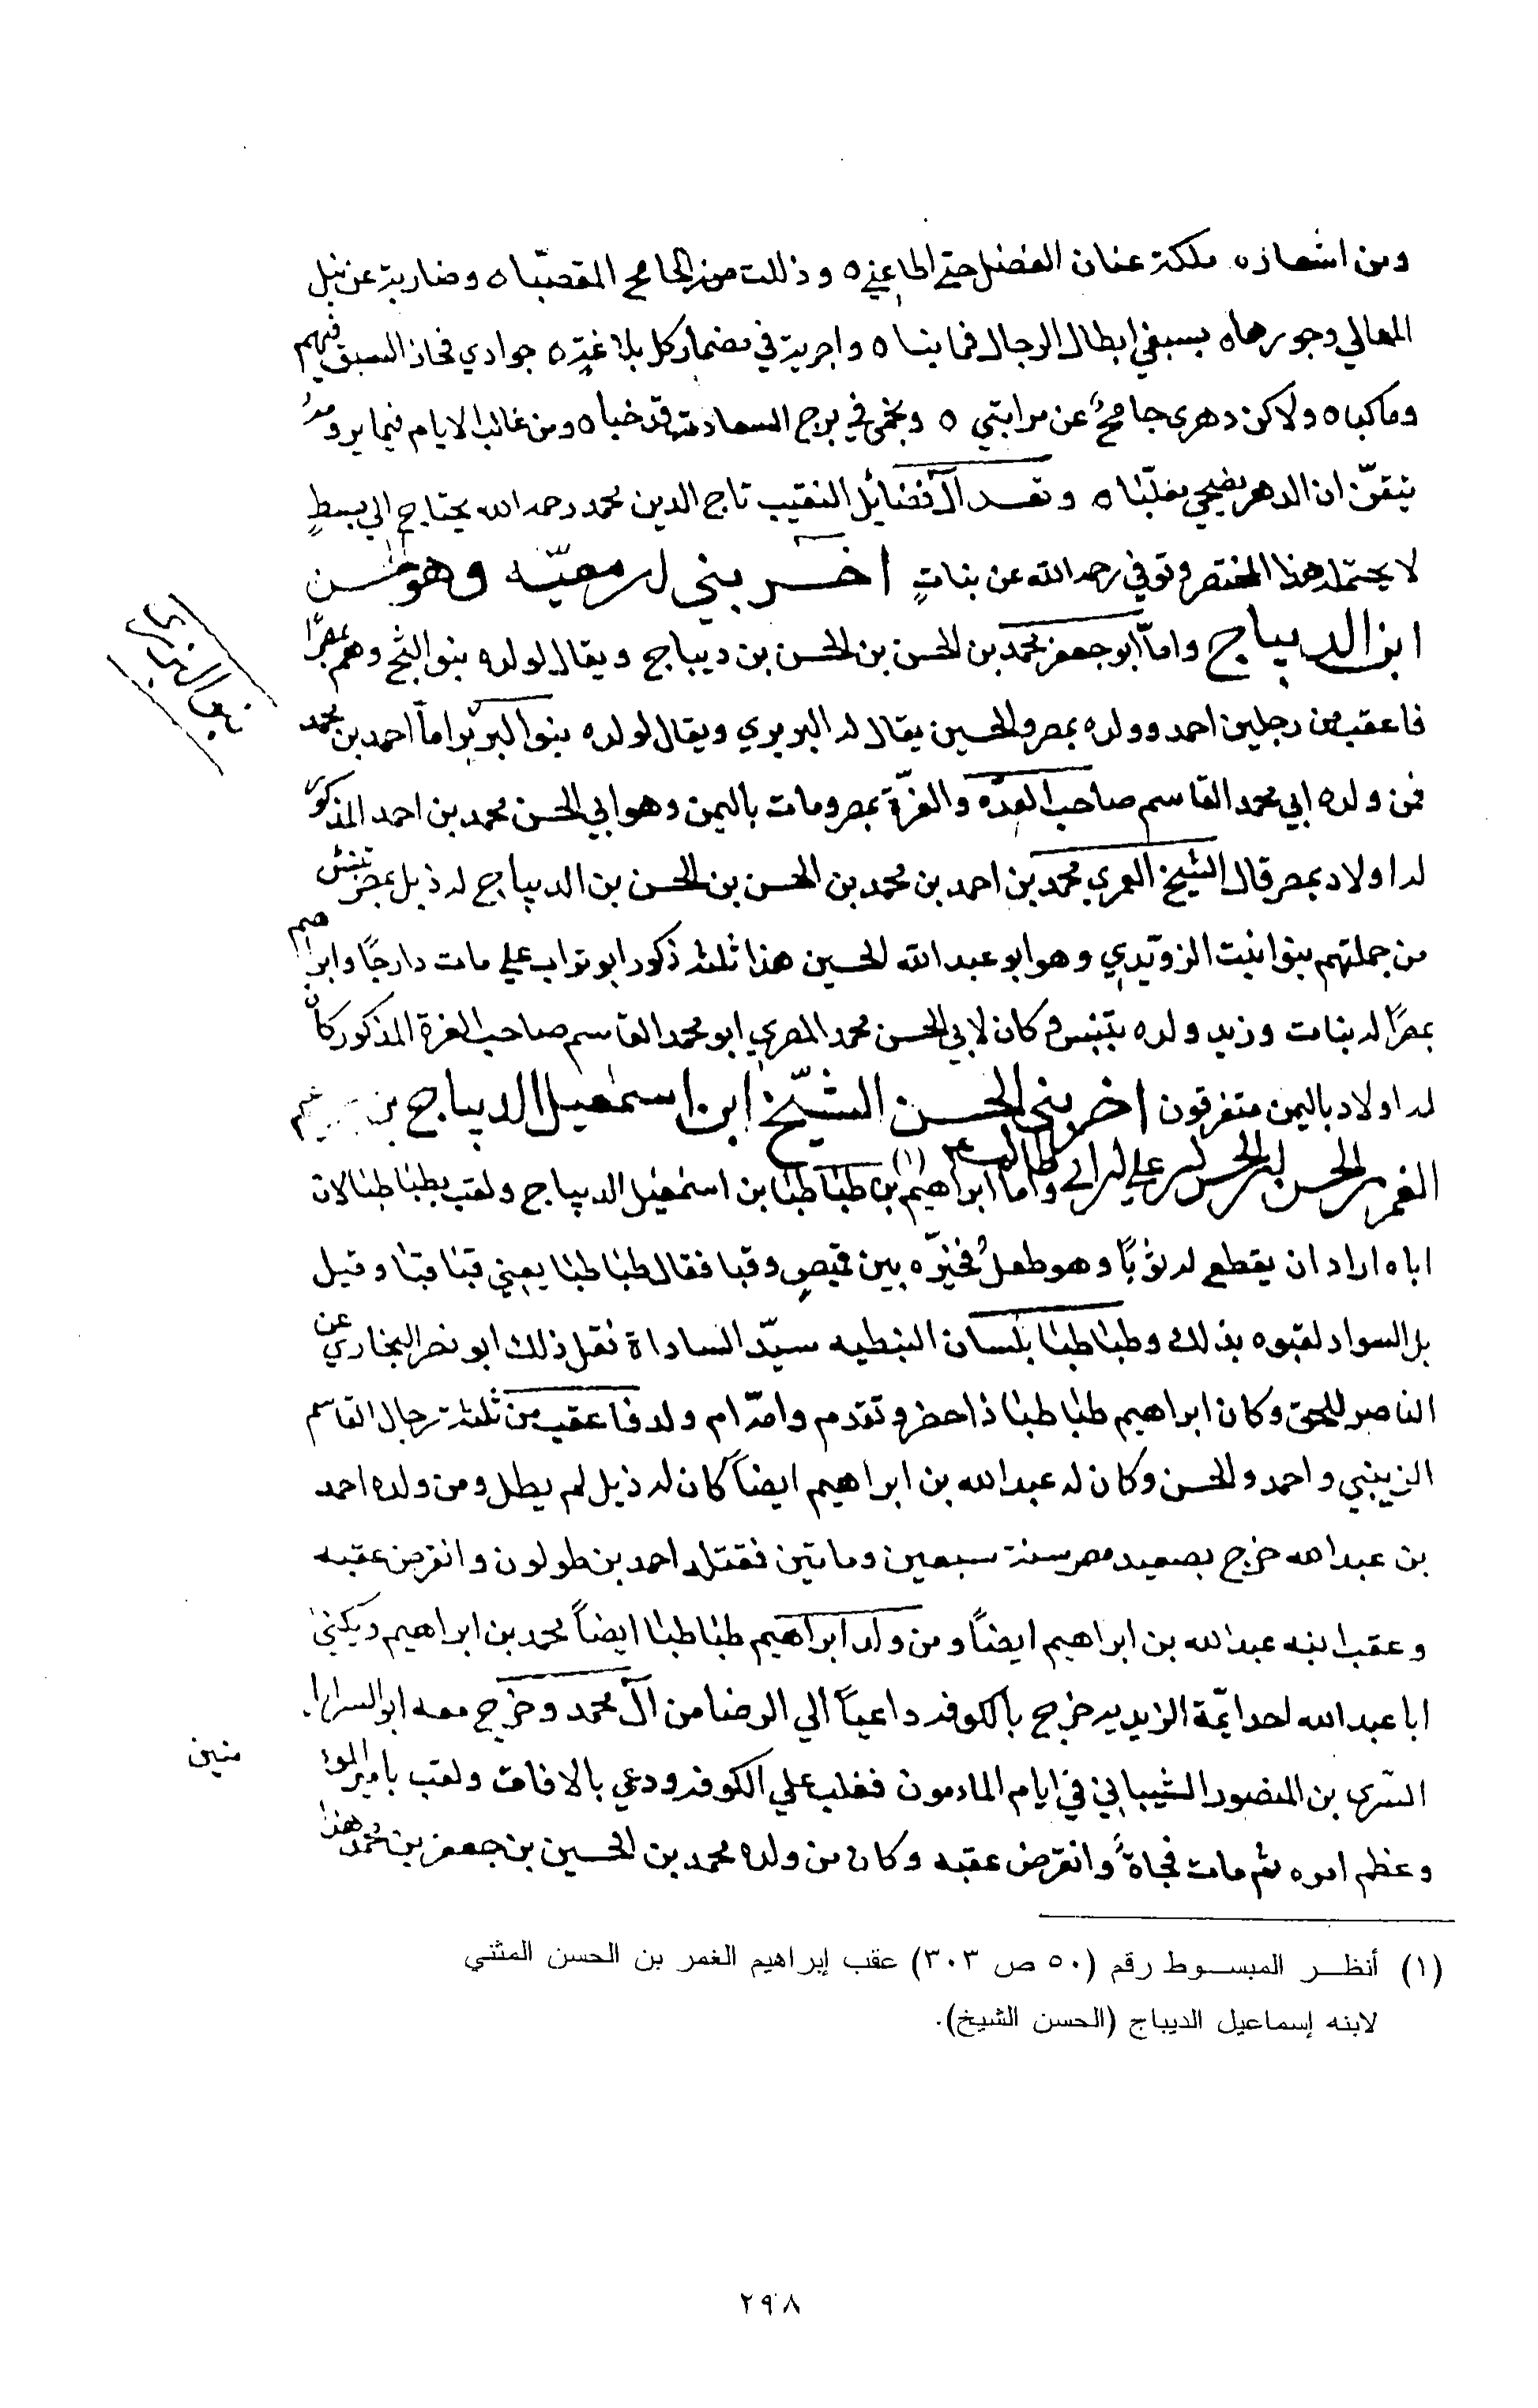 ومن اشعاره ملكت عنان الفضل حتي اطاعني ه وذللت منه الجامح المقصبا ه وضاربت عن نيل
المعالي وحوزها ه بسيفي ابطال الرجال فما نبا ه واجريت في مضمار كل بلاغة ه جوادي فحاز السبق فيهم
وما كبا ه ولاكن دهري جامح عن مراتبي ه ونجمي في برج السعادة قد خبا ه ومن غالب الايام فيما يرومه
تيقن ان الدهر يضحي مغلبا ه وتعـــد آلا فضائل النقيب تاج الدين محمد رحمه الله يحتاج الي بسط
لا يحتمله هذا المختصر وتوفي رحمه الله عن بنات اخــر بني معيّه وهو الحسن
ابن الديباج واما ابو جعفر محمد بن الحسن بن الحسن بن ديباج ويقال لولده بنو الثج وهم بمصر
فاعقب من رجلين احمد وولده بمصر والحسين يقال له البربري ويقال لولده بنو البربري اما احمد بن محمد
بنو البربري
فمن ولده ابي محمد القاسم صاحب العدّه والغزّة بمصر ومات باليمن وهو ابي الحسن محمد بن احمد المذكور
له اولاد بمصر قال الشيخ العمري محمد بن احمد بن محمد بن الحسن بن الحسن بن الديباج له ذيل بمصر تنيس
من جملتهم بنو ابنت الزويدي وهو ابو عبد الله الحسين هذا ثلثه ذكور ابو تراب علي مات دارجًا وابراهيم
بمصرًا له بنات وزيد ولده بتنيس وكان لابي الحسن محمد المصري ابو محمد القاسم صاحب الغزة المذكور كان
له اولاد باليمن متفرقون اخر بني الحسن الشيخ ابن اسمعيل الديباج بن ابراهيم
الغمر بن الحسن بن الحسن بن علي بن ابي طالب (١) واما ابراهيم بن طباطبا بن اسمعيل الديباج ولقب بطباطبا لان
اباه اراد ان يقطع له ثوبًا وهو طفل فخيّره بين قميص وقبا فقال طباطبا يعني قبا قبا وقيل
بل السواد لقبوه بذلك وطباطبا بلسان النبطيه سيّد السادة نقل ذلك ابو نصر البخاري عن
الناصر للحق وكان ابراهيم طباطبا ذا خطر وتقدم وامّ ام ولد فاعقب من ثلثة رجال القاسم
الزينبي واحمد والحسن وكان له عبد الله بن ابراهيم ايضاً كان له ذيل لم يطل ومن ولده احمد
بن عبد الله خرج بصعيد مصر سنة سبعين وماتين فقتله احمد بن طولون وانقرض عقبه
وعقب ابنه عبد الله بن ابراهيم ايضاً ومن ولد ابراهيم طباطبا ايضاً محمد بن ابراهيم ويكني
ابا عبد الله احد ايمّة الزيديه خرج بالكوفه داعياً الي الرضا من آل محمد وخرج معه ابو السرايا
السري بن المنصور الشيباني في ايام المامون فغلب علي الكوفه ودعي بالافاق ولقب بامير المو
منين
وعظم امره ثم مات فجاة وانقرض عقبه وكان من ولده محمد بن الحسين بن جعفر بن محمد هذا
(١) أنظـــر المبســـوط رقم (٥٠ ص ٣٠٣) عقب إبراهيم الغمر بن الحسن المثنى
لابنه إسماعيل الديباج (الحسن الشيخ).
٢٩٨